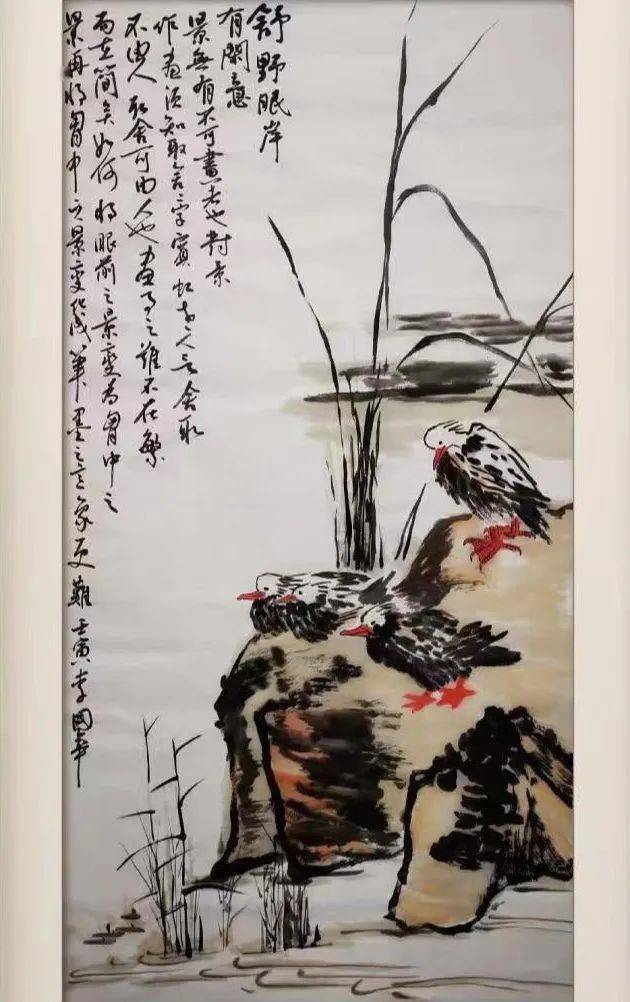 舒野眠岸
有閑意
景無有不可畫者也對景
作畫須知取舍二字賓虹老人言舍取
不由人取舍可由人也畫事之難不在繁
而在簡矣如何將眼前之景變為胸中之
景再將胸中之景變化成筆墨之意象更難壬寅李國華